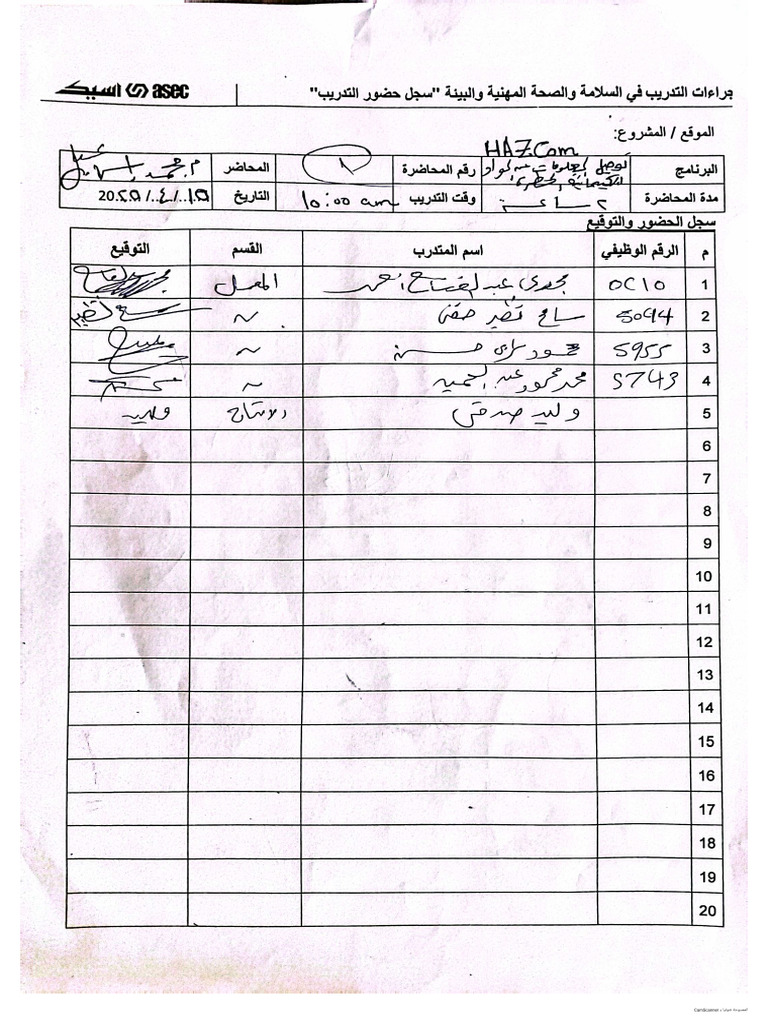 اسيك asec
جراءات التدريب في السلامة والصحة المهنية والبيئة "سجل حضور التدريب"
الموقع / المشروع:
HAZ.Com
البرنامج توصيل المعلومات عن المواد الكيميائية الخطرة رقم المحاضرة ١ المحاضر م. محمد إسماعيل
مدة المحاضرة ٢ ساعة وقت التدريب 10:00 am التاريخ
سجل الحضور والتوقيع
م الرقم الوظيفي اسم المتدرب القسم التوقيع
1 مجدى عبد الفتاح المعمل
2 5094 سامح نظير ~ سامح نظير
3 5955 حسن ~
4 5743 محمد محمود عبد الحميد ~
5 وليد صدقى الانتاج وليد
6
7
8
9
10
11
12
13
14
15
16
17
18
19
20
CamScanner